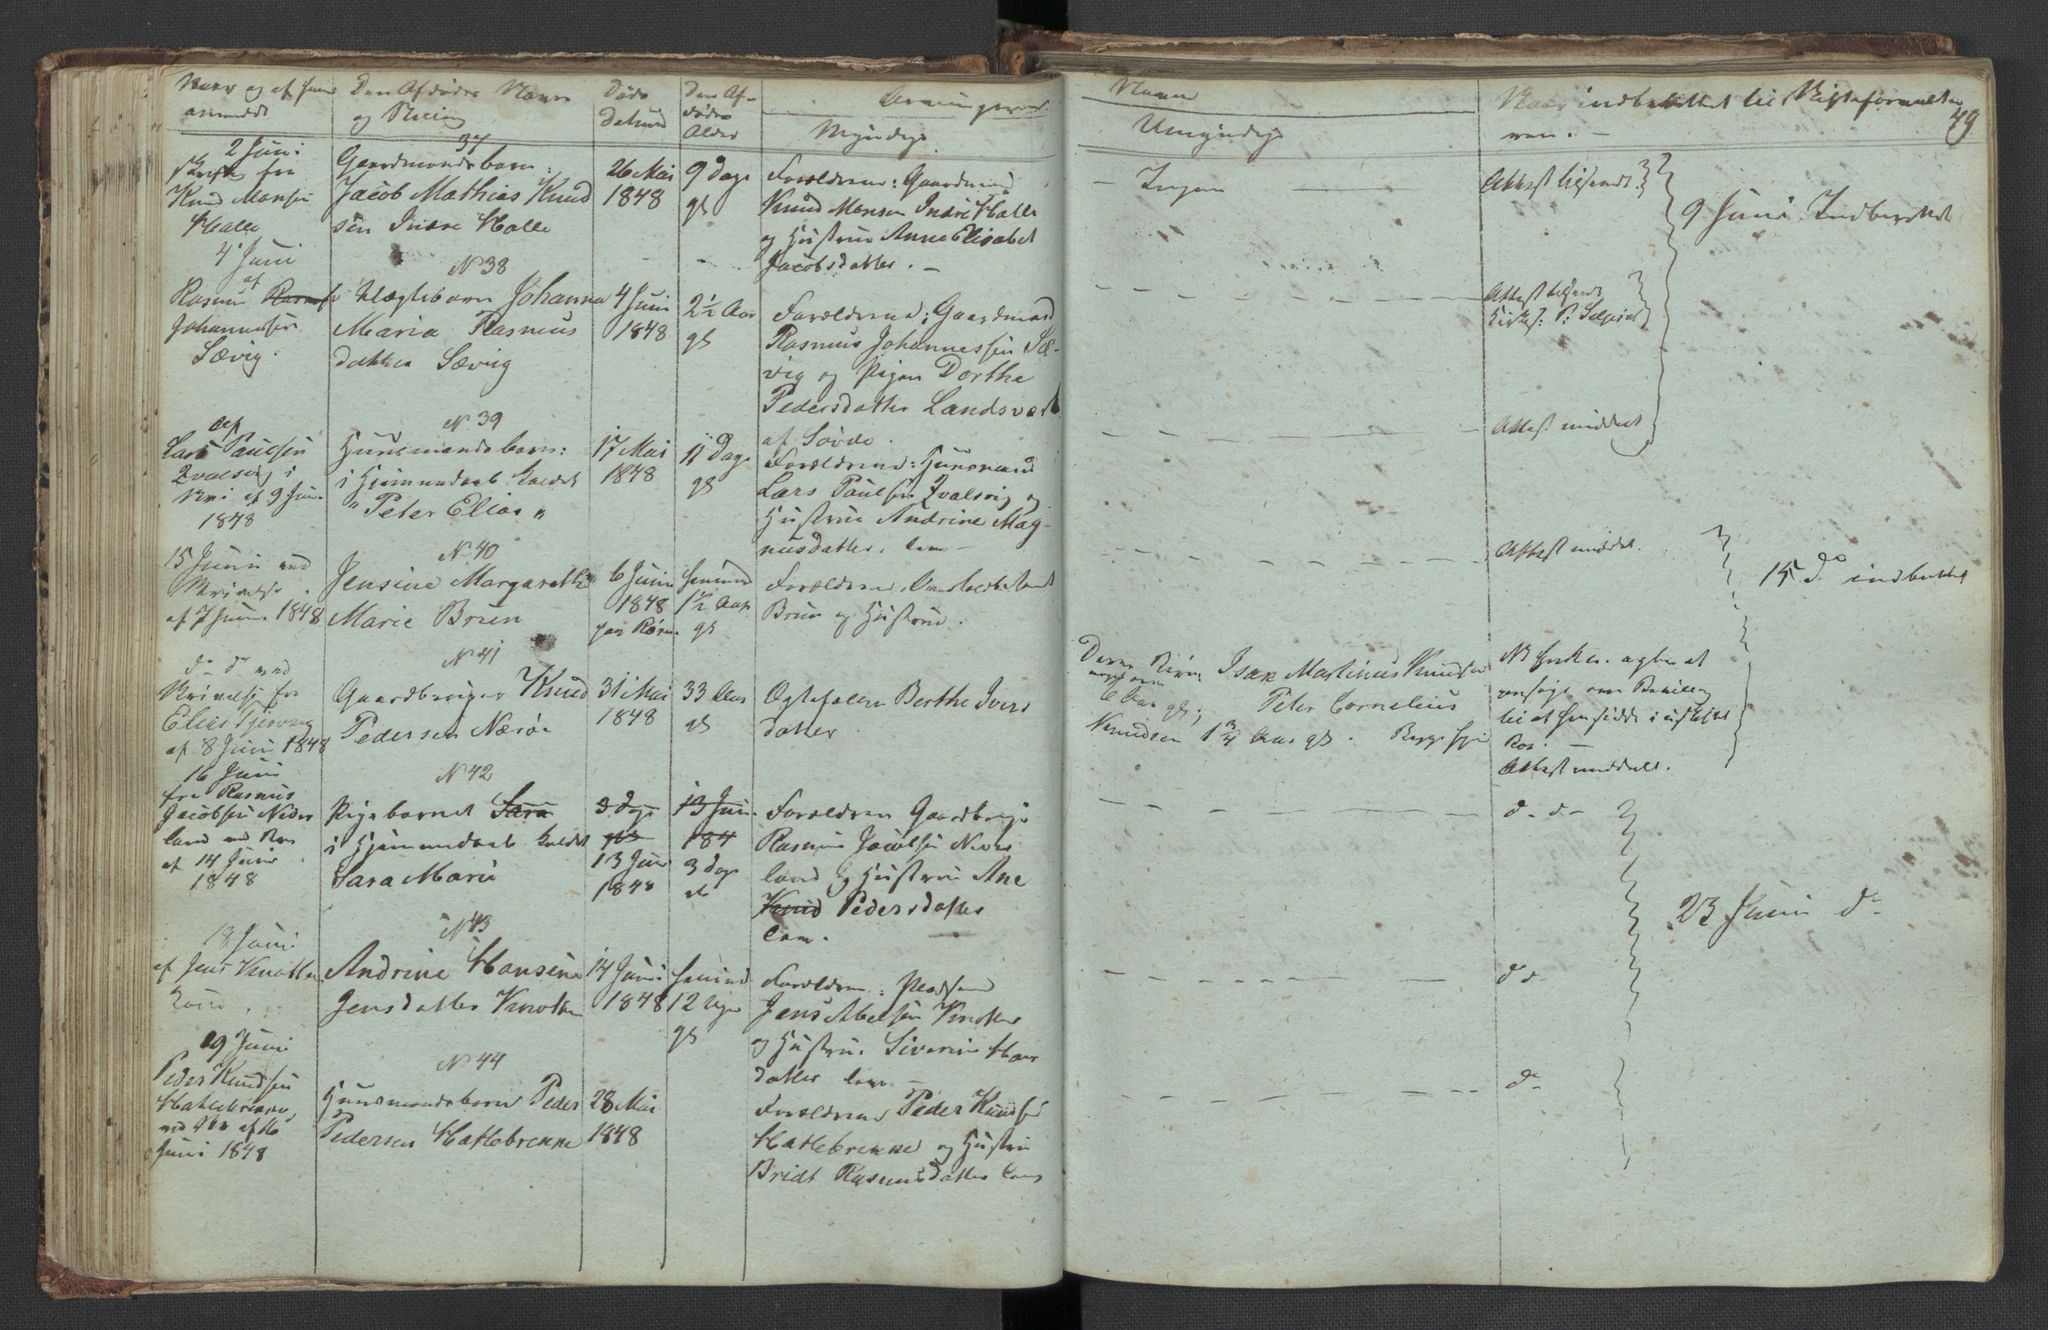 Naar og af hvem
anmeldt
Den Afdødes Navn
og Stilling
Døds
Datum
Den Af-
dødes
Alder
Arvingernes
Myndige
Navn
Umyndige
Naar indberettet til Skifteforvalte
ren. -
49
2 Juni
fra
Knud Monsen
Halle
37
Gaardmandsbarn:
Jacob Mathias Knud
sen Indre Halle
26 Mai
1848
9 Dage
gl
Forældrene: Gaardmand
Knud Monsen Indre Halle
og Hustrue Anne Elisabet
Jacobsdatter. -
- Ingen -
Attest tilsendt.
9 Juni Indberettet
4 Juni
af
Rasmus
Johannessen
Sævig.
N 38
Uægtebarn Johanna
Maria Rasmus
datter Sævig
4 Juni
1848
2½ Aar
gl
Forældrene: Gaardmand
Rasmus Johannessen Sæ-
vig og Pigen Dorthe
Pedersdatter Landsværk
af Søvde.
Attest tilsendt
Af
Lars Paulsen
Qvalsvig i
af 9 Juni
1848
N 39
Huusmandsbarn:
i Hjemmedaab kaldet
"Peter Elias"
17 Mai
1848
11 Dage
gl
Forældrene: Huusmand
Lars Paulsen Qvalsvig og
Hustrue Andrine Mag-
nusdatter.
Attest meddelt
15 Juni ved
Skrivelse
af 7 Juni 1848
N 40
Jensine Margarethe
Marie Brun
6 Juni
1848
1½ Aar
gl
Forældrene
Brun og Hustrue.
Attest meddelt.
15 do indberettet
do do ved
Skrivelse fra
Elias
af 8 Juni 1848
N 41
Gaardbruger Knud
Pedersen Nærøe
31 Mai
1848
33 Aar
gl
Ægtefolen Berthe Ivers
datter
Deres Børn Isak Martinus Knudsen
6 Aar gl; Peter Cornelius
Knudsen 1¾ Aar gl. Begge
NB Enken agter at
ansøge om Bevilling
til at hensidde i uskiftet
Boe. -
Attest meddelt.
16 Juni
fra Rasmus
Jacobsen Neder
land ved
af 14 Juni
1848
N 42
Pigebarnet Sara
i Hjemmedaab kaldet
Sara Marie
3 Dage
13 Juni
1848
13 Juni
184
3 Dage
Forældrene Gaardbruger
Rasmus Jacobsen Neder
land og Hustrue Ane
Knud Pedersdatter
d. d-
23 Juni do
18 Juni
af Jens Knotten
N 43
Andrine Hansine
Jensdatter Knotten
14 Juni
1848
12 Uger
gl
Forældrene: Pladsmand
Jens Abelsen Knotten
og Hustrue Siverine Hans
datter
d d-
19 Juni
Peder Knudsen
Hatlebrekke
af 16
Juni 1848
N 44
Huusmandsbarn Peder
Pedersen Hatlebrekke
28 Mai
1848
Forældrene Peder Knudsen
Hatlebrekke og Hustrue
Bridt Rasmusdatter
d-